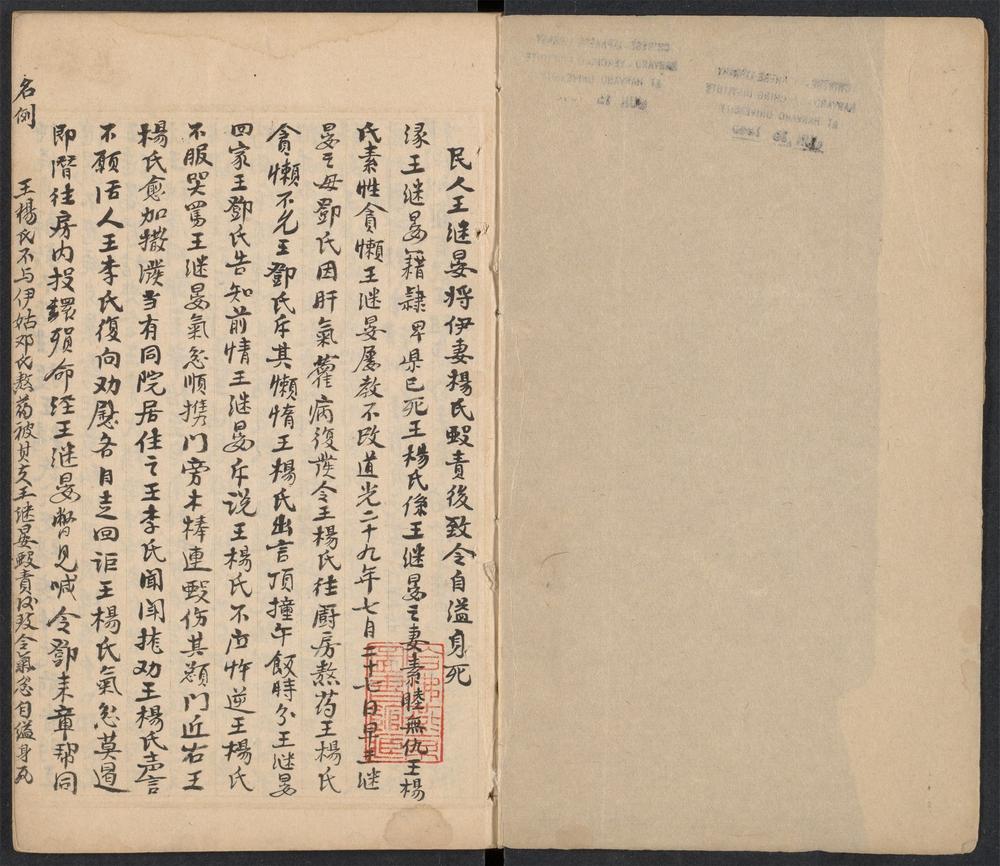 民人王继晏将伊妻楊氏毆責後致令自溢身死
缘王继晏籍隷卑県已死王楊氏係王继晏之妻素睦無仇王楊
氏素性貪懶王继晏屡教不改道光二十九年七月二十七日早王继
晏之母鄧氏因肝氣藿病復發令王楊氏往厨房熬药王楊氏
貪懶不允王鄧氏斥其懶惰王楊氏出言頂撞午飯時分王继晏
回家王鄧氏告知前情王继晏斥说王楊氏不应忤逆王楊氏
不服哭罵王继晏氣忿順携门旁木棒連毆伤其顖门近右王
楊氏愈加撒潑当有同院居住之王李氏聞闹拢劝王楊氏声言
不願活人王李氏復向劝慰各自走回讵王楊氏氣忿莫遏
即潛往房内投繯殞命经王继晏瞥見喊令鄧来章帮同
名例
王楊氏不与伊姑邓氏熬药被其夫王继晏毆責後致令氣忿自縊身死
CHINESE-JAPANESE LIBRARY
HARVARD-YENCHING INSTITUTE
AT HARVARD UNIVERSITY